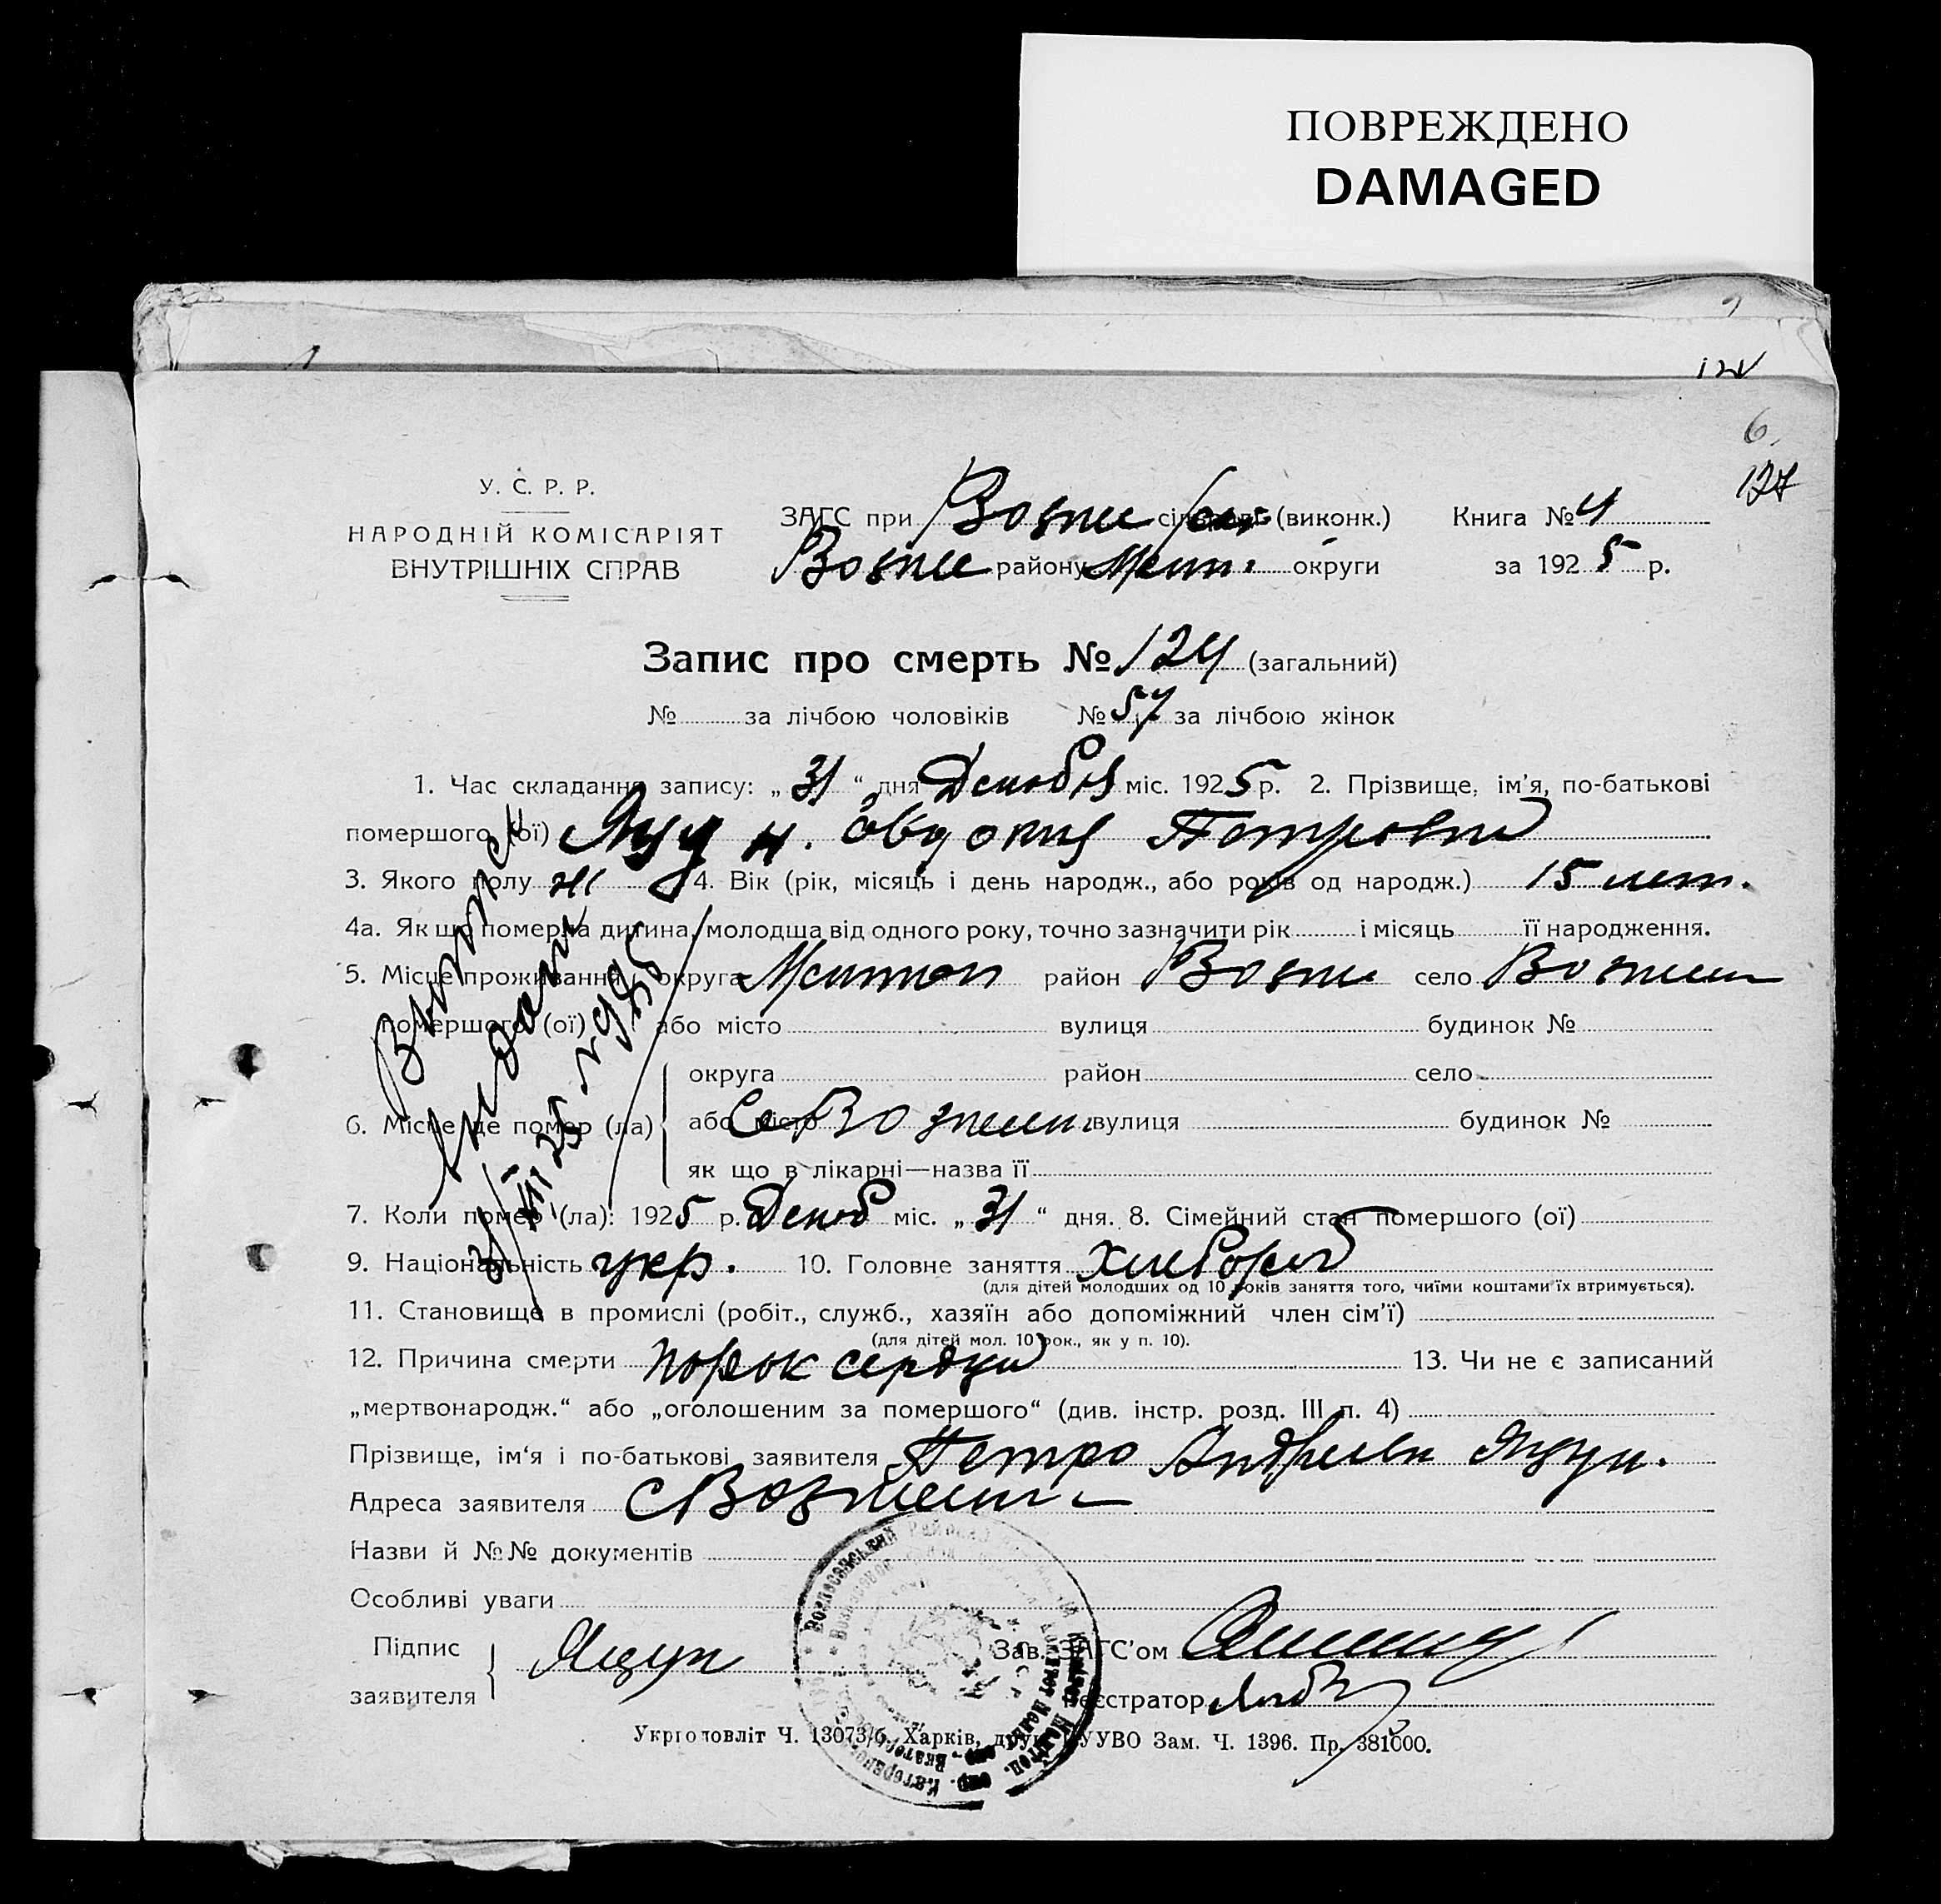 ПОВРЕЖДЕНО
DAMAGED
6.
127
У. С. Р. Р.
НАРОДНІЙ КОМІСАРІЯТ
ВНУТРІШНІХ СПРАВ
ЗАГС при Возне (виконк.) Книга № 4
Возне району Мелит. округи за 1925 р.
Запис про смерть № 124 (загальний)
№ за лічбою чоловіків № 57 за лічбою жінок
1. Час складання запису: „31“ дня Декабря міс. 1925 р. 2. Прізвище, ім'я, по-батькові
помершого (ої) Яцун. Овдокия Петровна
3. Якого полу ж 4. Вік (рік, місяць і день народж., або років од народж.) 15 лет.
4а. Як що померла дитина, молодша від одного року, точно зазначити рік і місяць її народження.
5. Місце проживання округа Мелитоп район Возне село Вознесен
помершого (ої) або місто вулиця будинок №
округа район село
6. Місце де помер (ла) або місто С Вознесен. вулиця будинок №
як що в лікарні—назва її
7. Коли помер (ла): 1925 р. Декаб міс. „31“ дня. 8. Сімейний стан помершого (ої)
9. Національність укр. 10. Головне заняття Хлебороб
(для дітей молодших од 10 років заняття того, чиїми коштами їх втримується).
11. Становище в промислі (робіт., служб., хазяїн або допоміжний член сім'ї)
(для дітей мол. 10 рок., як у п. 10).
12. Причина смерти порок сердца 13. Чи не є записаний
„мертвонародж.“ або „оголошеним за помершого“ (див. інстр. розд. III п. 4)
Прізвище, ім'я і по-батькові заявителя Петро Андреев Яцун.
Адреса заявителя с Вознесен
Назви й №№ документів
Особливі уваги
Підпис Яцун Зав. ЗАГС'ом
заявителя Реєстратор
Укрголовліт Ч. 13073/б. Харків, друк. УУВО Зам. Ч. 1396. Пр. 381000.
Выпись
выдан
31/XII 25 г